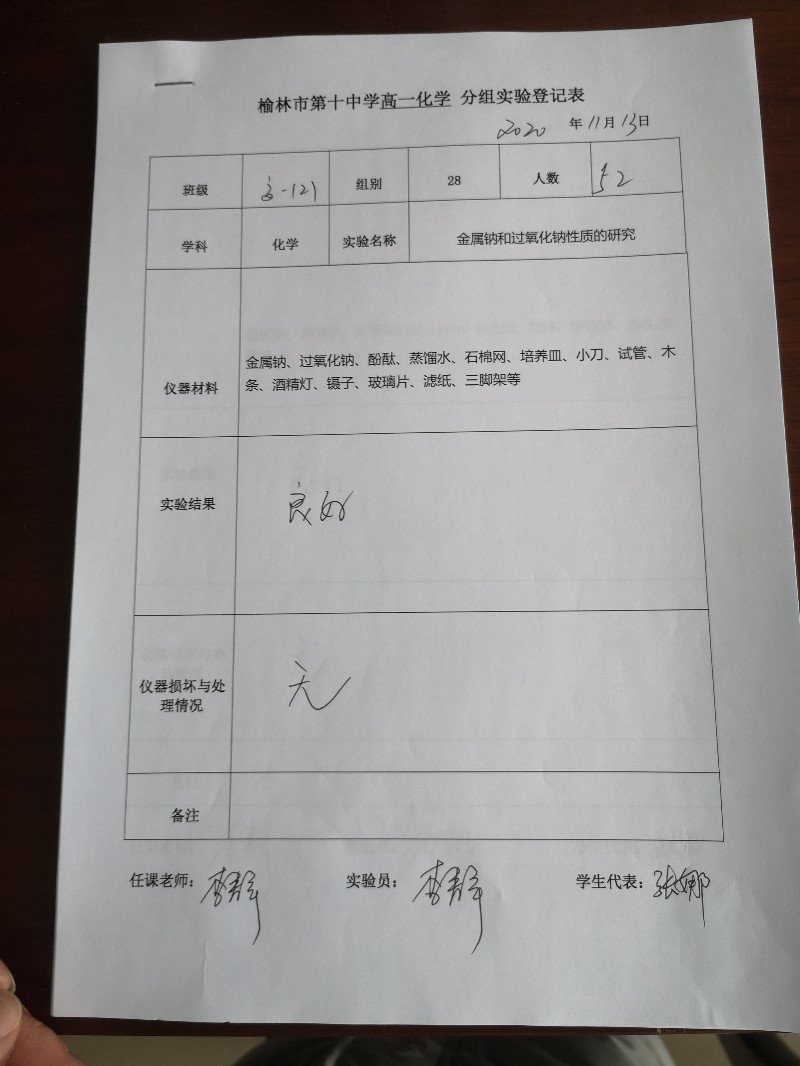 榆林市第十中学高一化学 分组实验登记表
2020 年 11 月 13 日
班级 高一(2) 组别 28 人数 52
学科 化学 实验名称 金属钠和过氧化钠性质的研究
金属钠、过氧化钠、酚酞、蒸馏水、石棉网、培养皿、小刀、试管、木
仪器材料
条、酒精灯、镊子、玻璃片、滤纸、三脚架等
实验结果 良好
仪器损坏与处
理情况
无
备注
任课老师: 实验员: 学生代表: 张娜